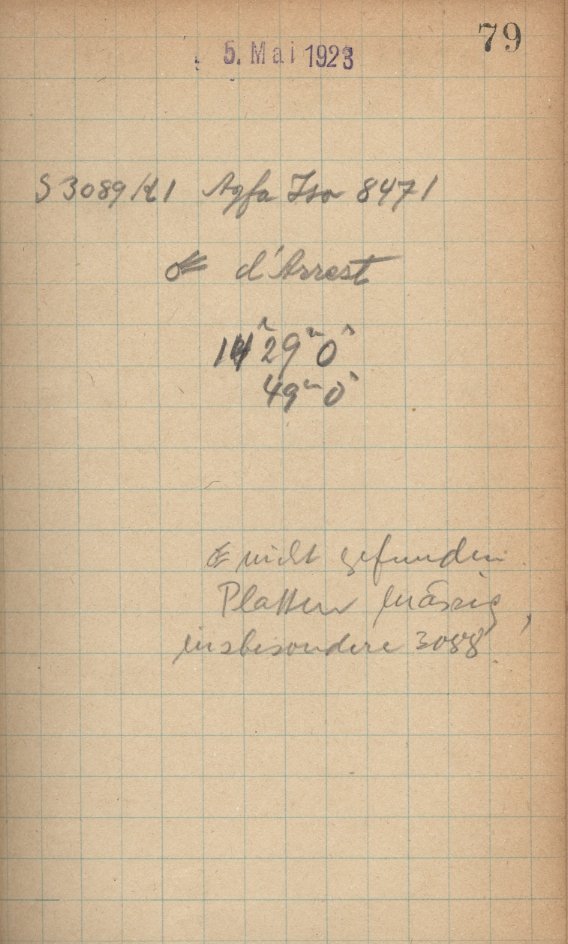 79
5. Mai 1923
S 3089/41 Agfa Iso 8471
☄ d'Arrest
14ʰ 29ᵐ 0ˢ
49ᵐ 0ˢ
☄ nicht gefunden.
Platten mässig,
insbesondere 3088